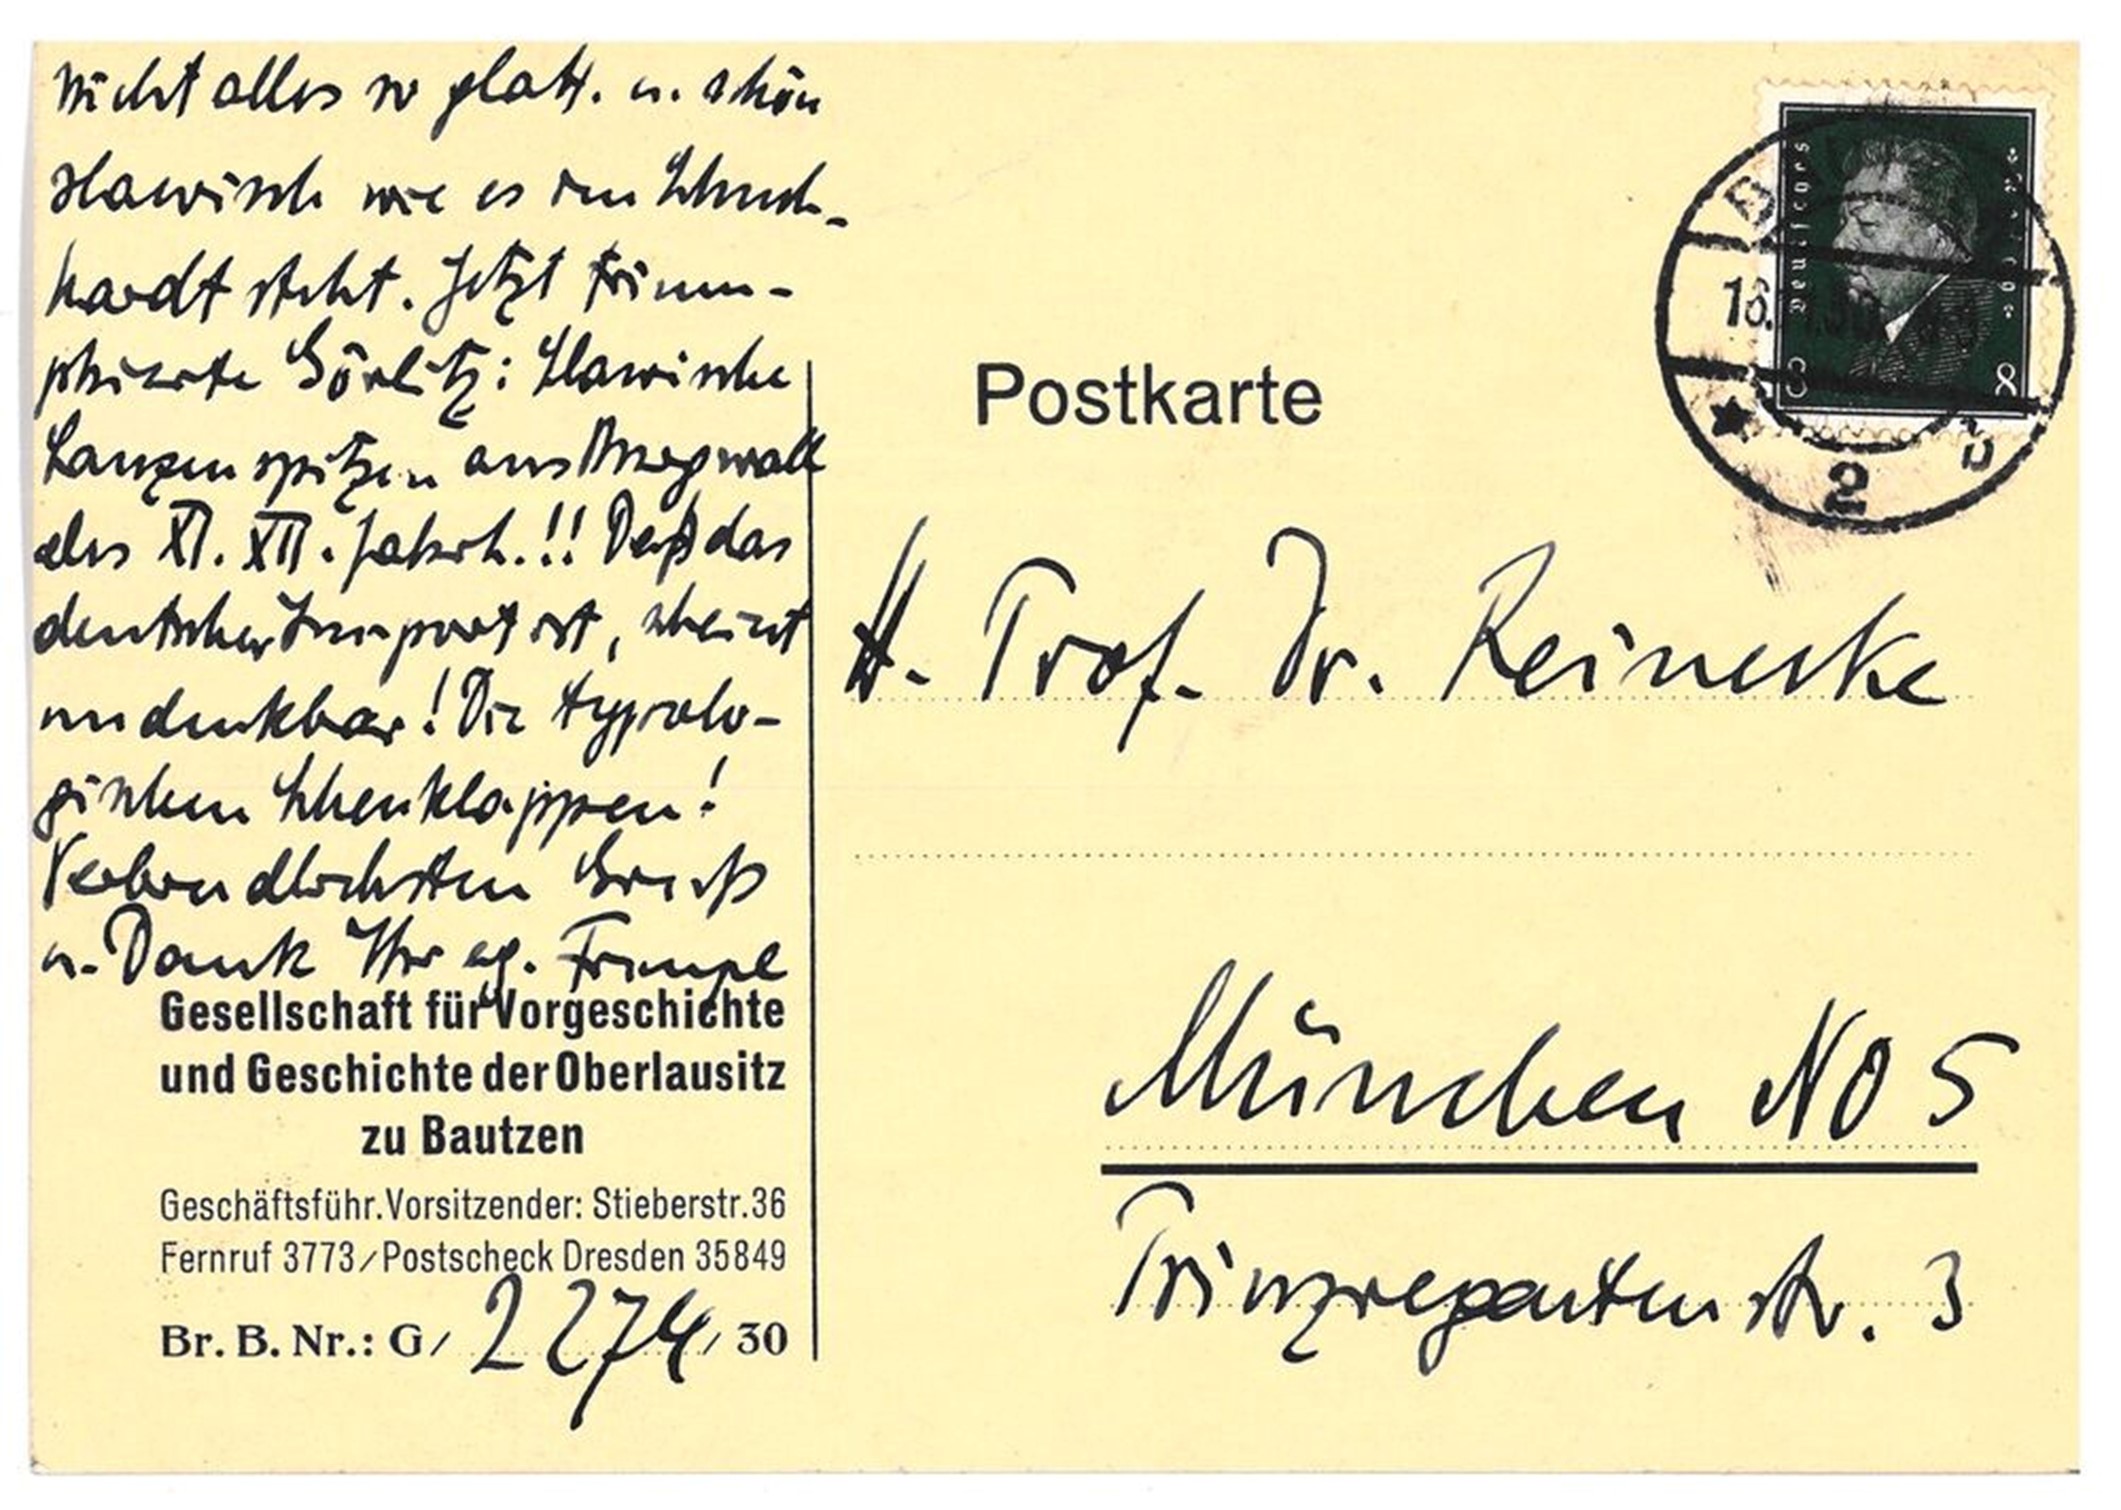 nicht alles so glatt. u. schön
slawisch wie es im Schuch-
hardt steht. Jetzt trium-
phierte Görlitz: Slawische
Lanzenspitzen aus Burgwall
des XI. XII. Jahrh.!! Daß das
deutscher Import ist, scheint
undenkbar! Die typolo-
gischen Scheuklappen!
Verbindlichsten Gruß
u. Dank Ihr erg. Frenzel
Gesellschaft für Vorgeschichte
und Geschichte der Oberlausitz
zu Bautzen
Geschäftsführ. Vorsitzender: Stieberstr. 36
Fernruf 3773 / Postscheck Dresden 35849
Br. B. Nr.: G/ 2274/ 30
Postkarte
Deutsches
8 8
16. 30
2
H. Prof. Dr. Reinecke
München NO 5
Prinzregentenstr. 3